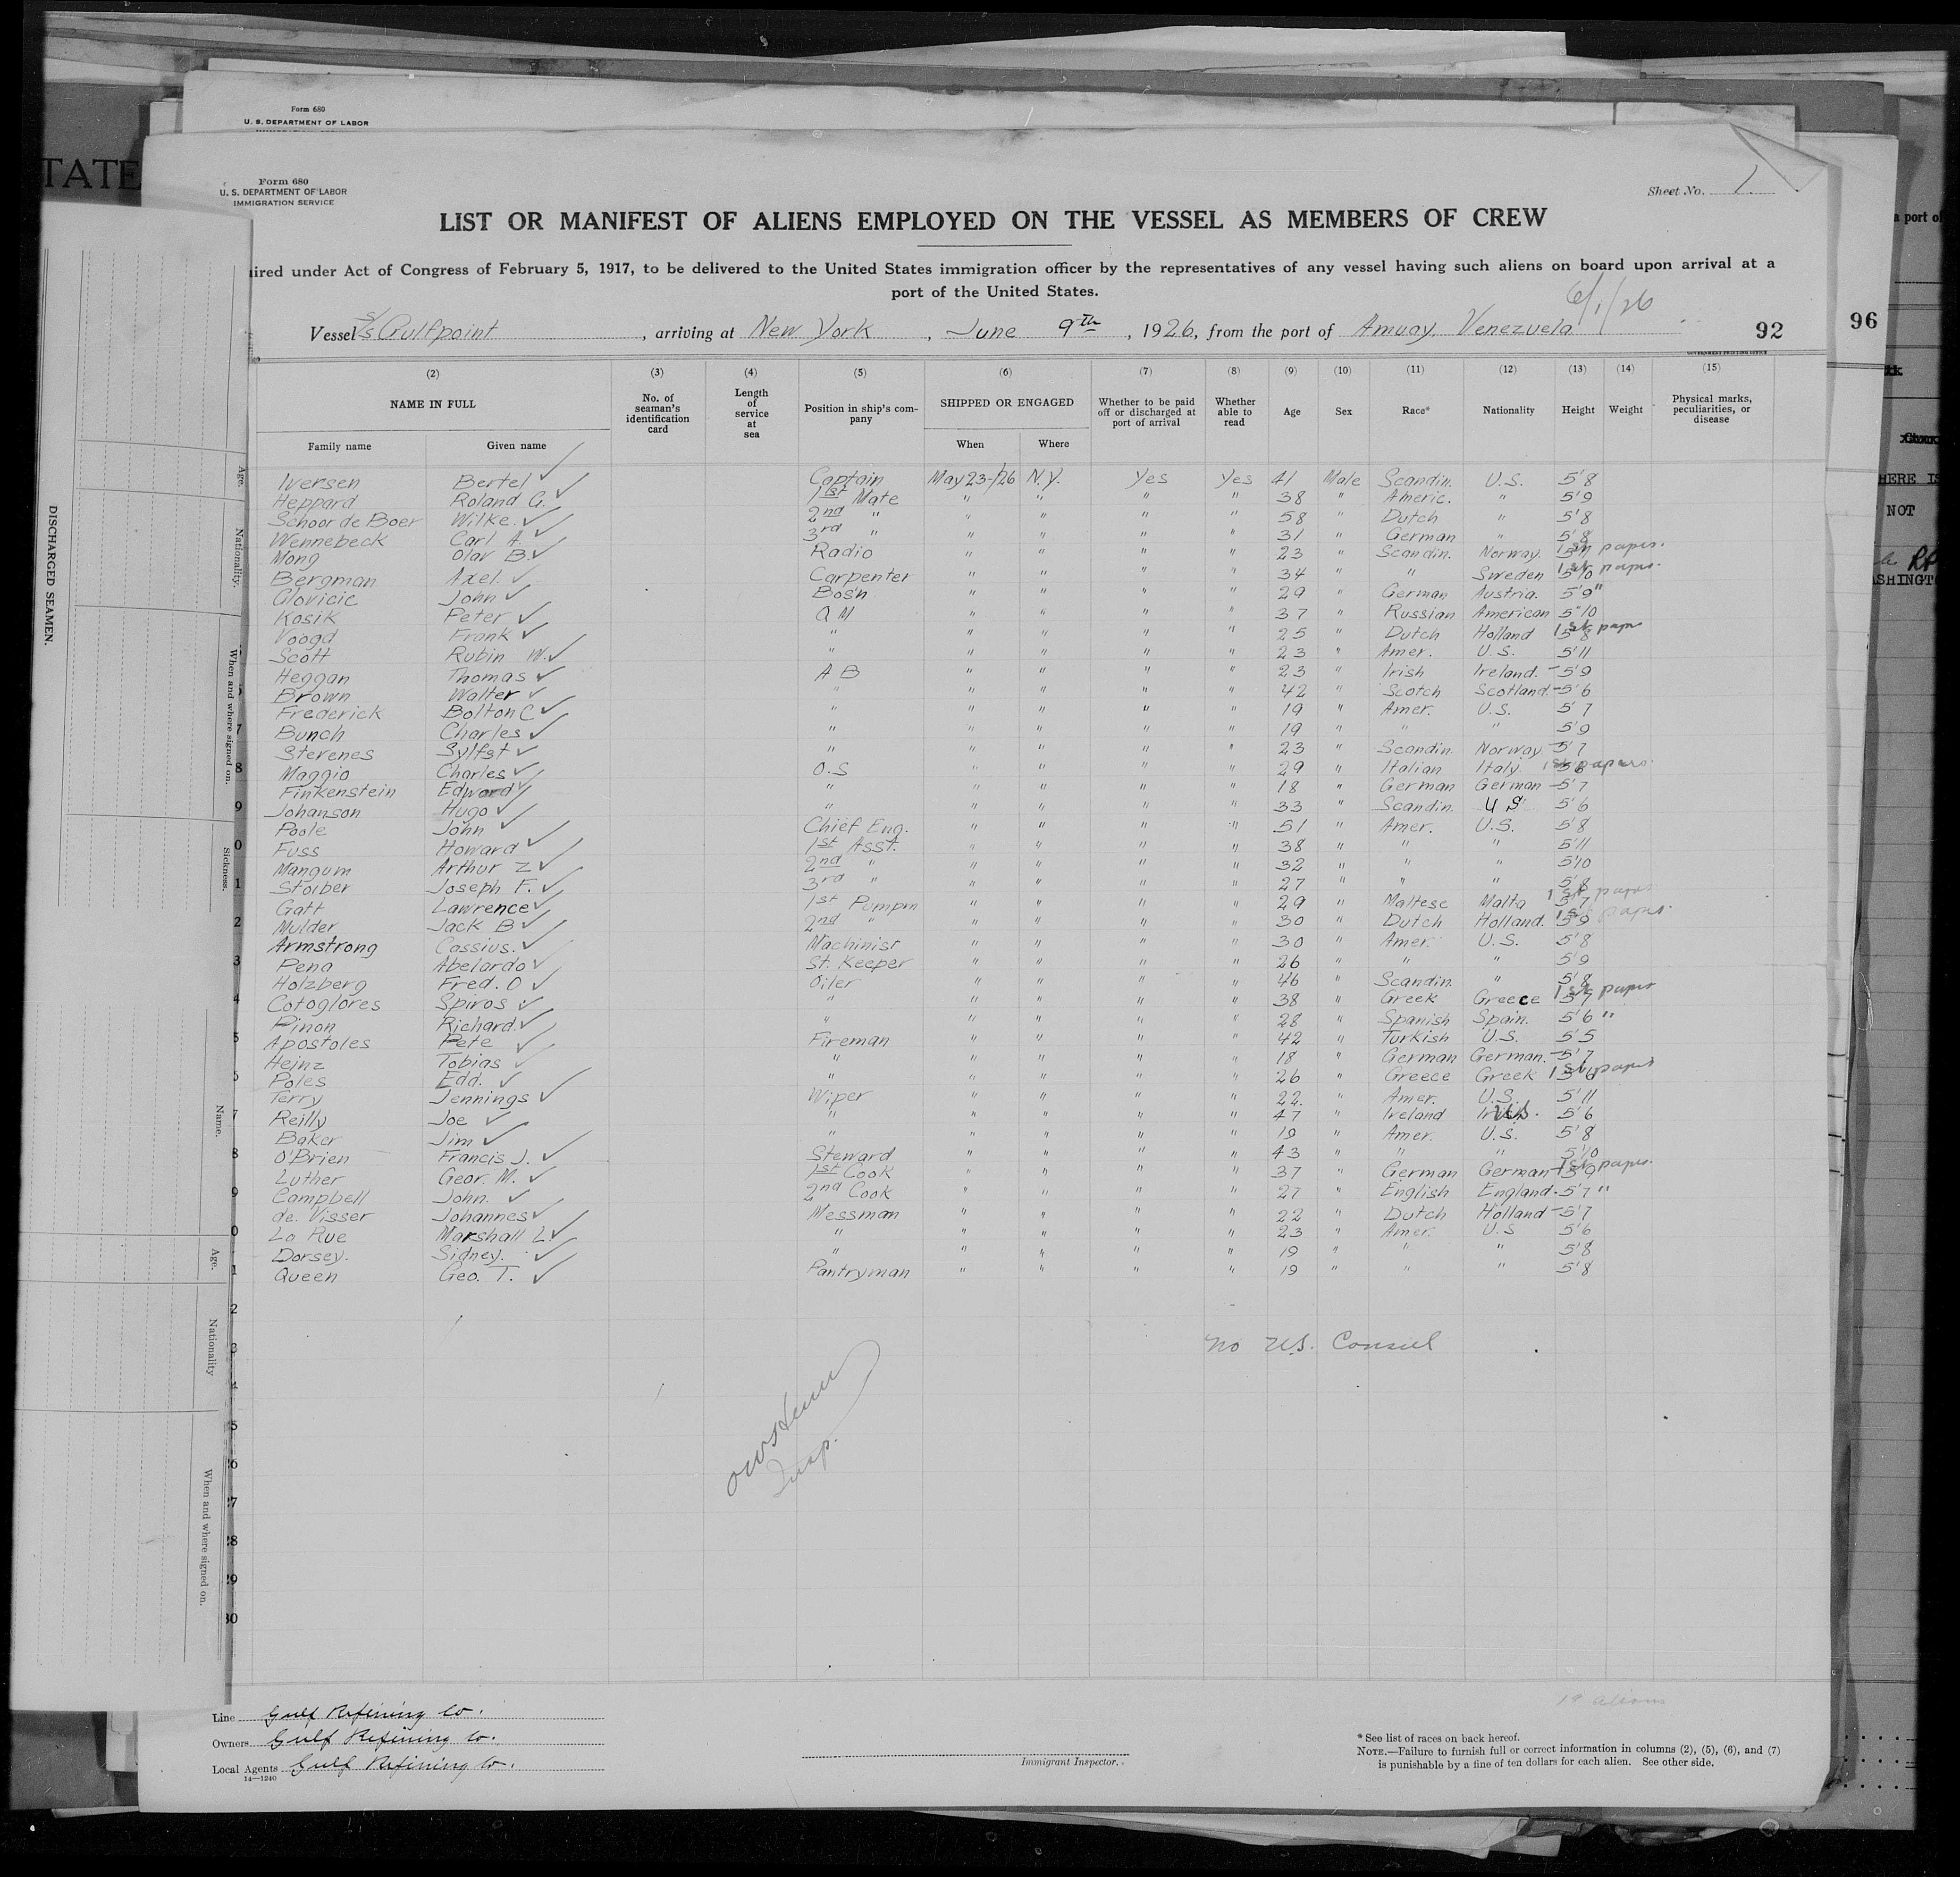 Form 680
U. S. DEPARTMENT OF LABOR
TATE
Form 680
U. S. DEPARTMENT OF LABOR
IMMIGRATION SERVICE
Sheet No. 1.
LIST OR MANIFEST OF ALIENS EMPLOYED ON THE VESSEL AS MEMBERS OF CREW
ired under Act of Congress of February 5, 1917, to be delivered to the United States immigration officer by the representatives of any vessel having such aliens on board upon arrival at a
port of the United States.
6/1/26
Vessel S/S Gulfpoint, arriving at New York, June 9th, 1926, from the port of Amuay, Venezuela
92
96
(2) (3) (4) (5) (6) (7) (8) (9) (10) (11) (12) (13) (14) (15)
NAME IN FULL No. of seaman's identification card Length of service at sea Position in ship's company SHIPPED OR ENGAGED Whether to be paid off or discharged at port of arrival Whether able to read Age Sex Race* Nationality Height Weight Physical marks, peculiarities, or disease
Family name Given name When Where
Iversen Bertel ✓ Captain May 23-/26 N.Y. Yes Yes 41 Male Scandin. U.S. 5'8
Heppard Roland G. ✓ 1st Mate " " " " 38 " Americ. " 5'9
Schoor de Boer Wilke. ✓ 2nd " " " " " 58 " Dutch " 5'8
Wennebeck Carl A. ✓ 3rd " " " " " 31 " German " 5'8
Mong Olav B. ✓ Radio " " " " 23 " Scandin. Norway. 1st papers.
Bergman Axel. ✓ Carpenter " " " " 34 " " Sweden 5'10 1st papers.
Glovicic John ✓ Bos'n " " " " 29 " German Austria. 5'9 "
Kosik Peter ✓ Q M " " " " 37 " Russian American 5'10
Voogd Frank ✓ " " " " " 25 " Dutch Holland 5'8 1st paper
Scott Rubin W. ✓ " " " " " 23 " Amer. U.S. 5'11
Heggan Thomas ✓ A B " " " " 23 " Irish Ireland. 5'9
Brown Walter ✓ " " " " " 42 " Scotch Scotland. 5'6
Frederick Bolton C ✓ " " " " " 19 " Amer. U.S. 5'7
Bunch Charles ✓ " " " " " 19 " " " 5'9
Stevenes Sylfst ✓ " " " " " 23 " Scandin. Norway 5'7
Maggio Charles ✓ O.S " " " " 29 " Italian Italy. 5'6 1st papers.
Finkenstein Edward ✓ " " " " " 18 " German German 5'7
Johanson Hugo ✓ " " " " " 33 " Scandin. U S. 5'6
Poole John ✓ Chief Eng. " " " " 51 " Amer. U.S. 5'8
Fuss Howard ✓ 1st Asst. " " " " 38 " " " 5'11
Mangum Arthur Z ✓ 2nd " " " " " 32 " " " 5'10
Stoiber Joseph F. ✓ 3rd " " " " " 27 " " " 5'8
Gatt Lawrence ✓ 1st Pumpm " " " " 29 " Maltese Malta 5'7 1st papers
Mulder Jack B ✓ 2nd " " " " " 30 " Dutch Holland. 5'9 1st papers.
Armstrong Cassius. ✓ Machinist " " " " 30 " Amer. U.S. 5'8
Pena Abelardo ✓ St. Keeper " " " " 26 " " " 5'9
Holzberg Fred. O ✓ Oiler " " " " 46 " Scandin. " 5'8
Cotoglores Spiros ✓ " " " " " 38 " Greek Greece 5'7 1st paper
Pinon Richard. ✓ " " " " " 28 " Spanish Spain. 5'6 "
Apostoles Pete ✓ Fireman " " " " 42 " Turkish U.S. 5'5
Heinz Tobias ✓ " " " " " 18 " German German. 5'7
Poles Edd. ✓ " " " " " 26 " Greece Greek 5'6 1st papers
Terry Jennings ✓ Wiper " " " " 22. " Amer. U.S. 5'11
Reilly Joe ✓ " " " " " 47 " Ireland U.S. 5'6
Baker Jim ✓ " " " " " 19 " Amer. U.S. 5'8
O'Brien Francis J. ✓ Steward " " " " 43 " " " 5'10
Luther Geor. M. ✓ 1st Cook " " " " 37 " German German 5'9 1st papers.
Campbell John. ✓ 2nd Cook " " " " 27 " English England. 5'7 "
de. Visser Johannes ✓ Messman " " " " 22 " Dutch Holland 5'7
La Rue Marshall L. ✓ " " " " " 23 " Amer. U.S 5'6
Dorsey. Sidney. ✓ " " " " " 19 " " " 5'8
Queen Geo. T. ✓ Pantryman " " " " 19 " " " 5'8
no U.S. Consul
Insp.
28
29
30
DISCHARGED SEAMEN.
Age.
Nationality.
When and where signed on.
Sickness.
Name.
Age.
Nationality
When and where signed on.
a port of
HERE IS
NOT
ASHINGT
Line Gulf Refining Co.
Owners Gulf Refining Co.
Local Agents Gulf Refining Co.
14—1240
Immigrant Inspector.
aliens
* See list of races on back hereof.
NOTE.—Failure to furnish full or correct information in columns (2), (5), (6), and (7)
is punishable by a fine of ten dollars for each alien. See other side.